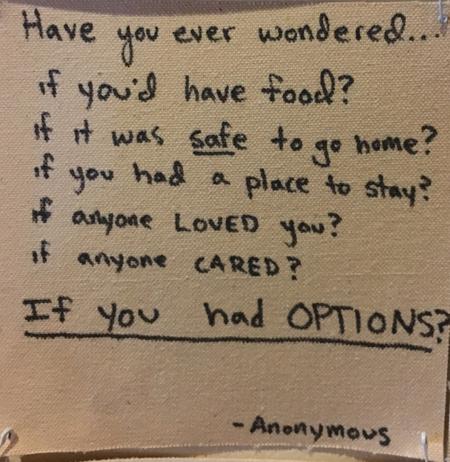 Have you ever wondered...
if you'd have food?
if it was safe to go home?
if you had a place to stay?
if anyone LOVED you?
if anyone CARED?
If you had OPTIONS?
-Anonymous